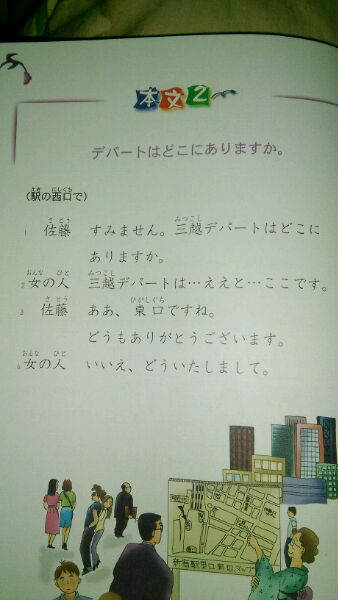 本文2
デパートはどこにありますか。
(駅の西口で)
1 佐藤 すみません。三越デパートはどこに
ありますか。
2 女の人 三越デパートは…ええと…ここです。
3 佐藤 ああ、東口ですね。
どうもありがとうございます。
4 女の人 いいえ、どういたしまして。